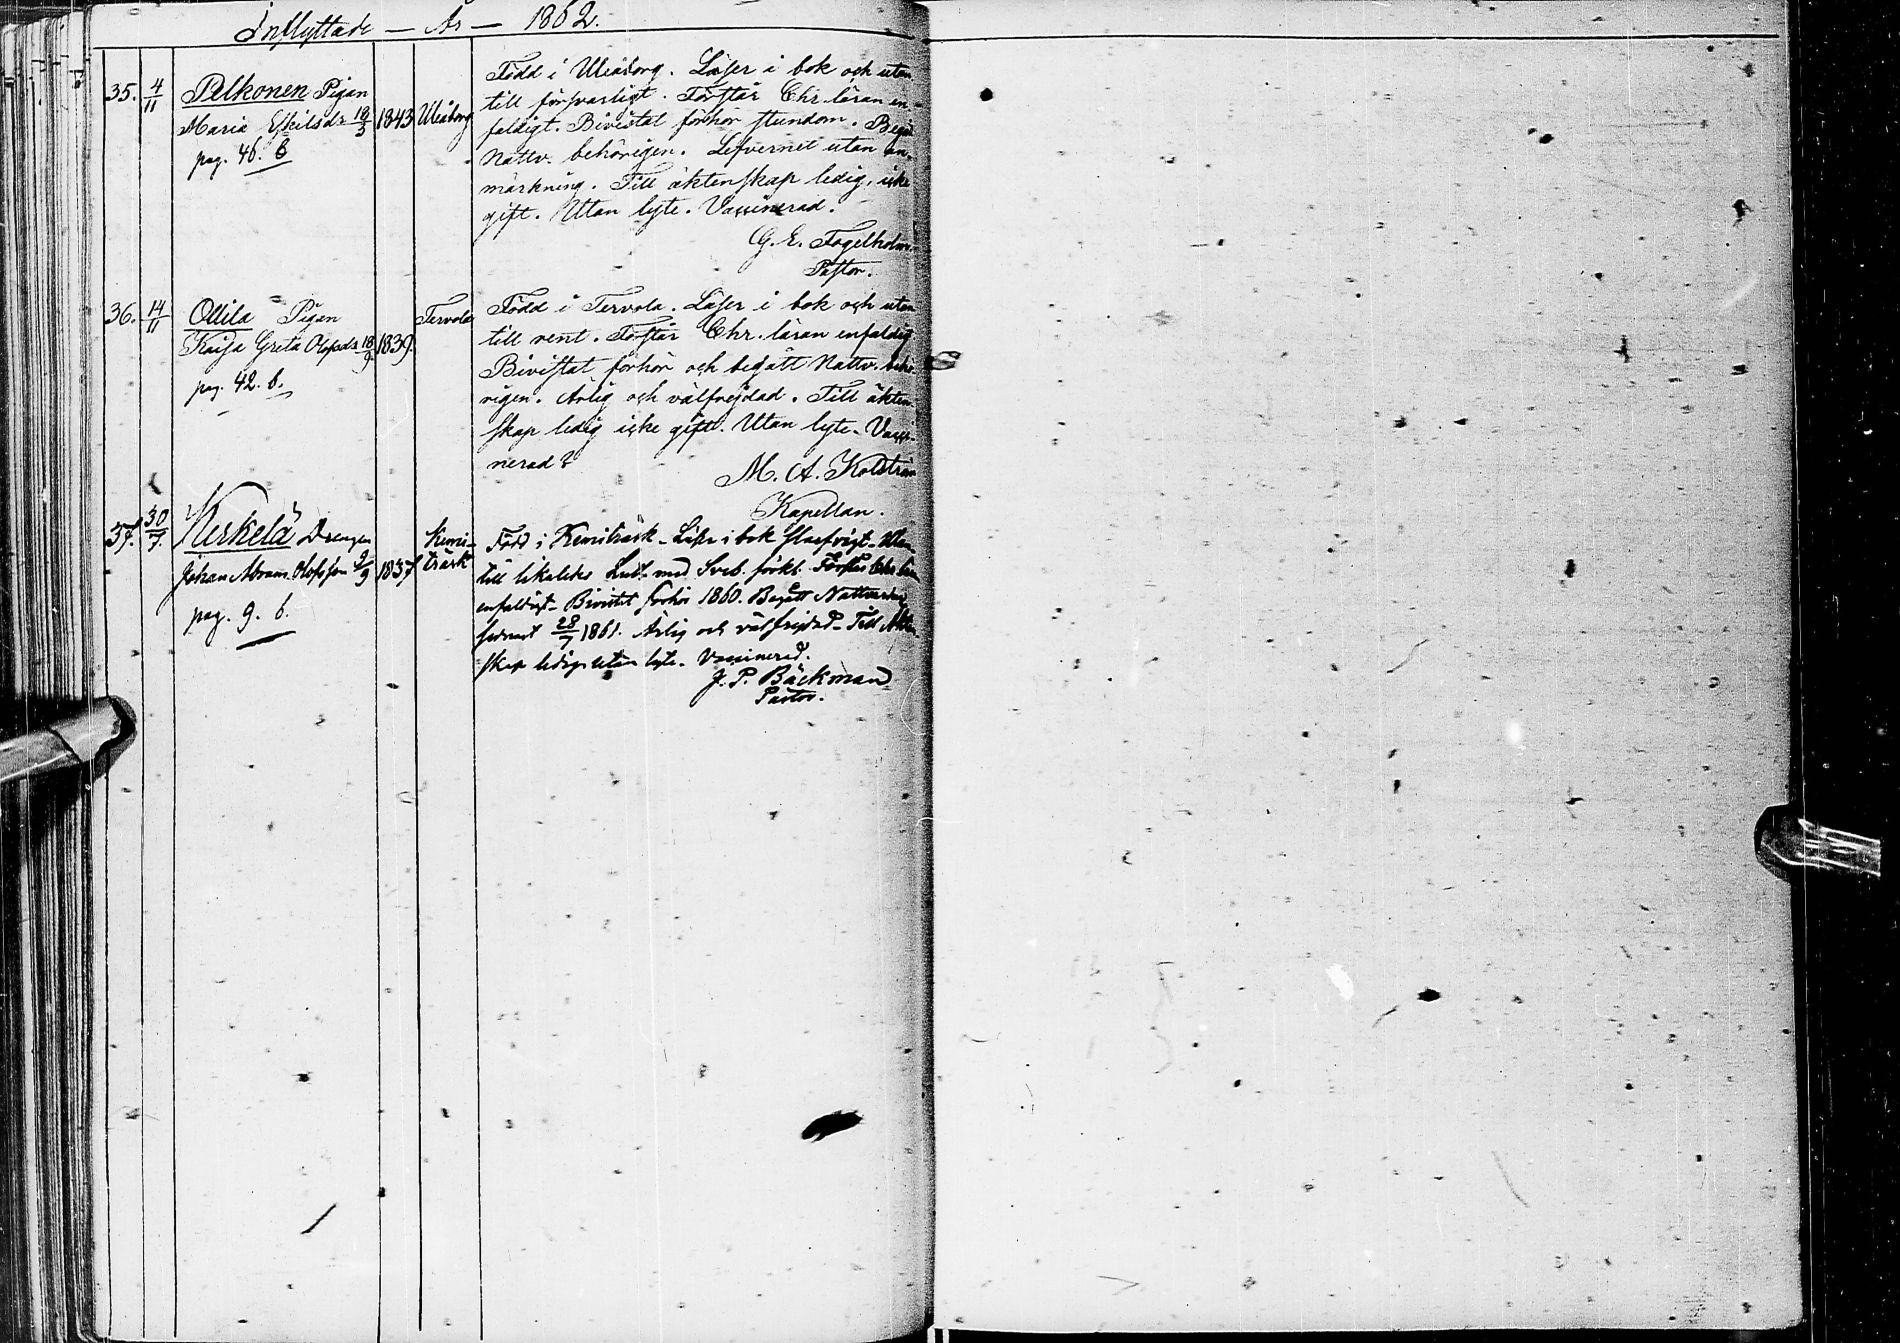 Inflyttade — År — 1862.
35. 4/11 Pelkonen Pigan
Maria Eskilsdr 18/3 1843 Uleåborg
pag. 46. b
Född i Uleåborg. Läser i bok och utan
till försvarligt. Förstår Chr. läran en-
faldigt. Bivistat förhör stundom. Begått
Nattv. behörigen. Lefvernet utan an-
märkning. Till äktenskap ledig, icke
gift. Utan lyte. Vaccinerad.
G. E. Fogelholm
Pastor.
36. 14/11 Ollila Pigan
Kaisa Greta Olofsdr 18/9 1839. Tervola
pag. 42. b.
Född i Tervola. Läser i bok och utan
till rent. Förstår Chr. läran enfaldig
Bivistat förhör och begått Nattv. behö-
rigen. Ärlig och välfrejdad. Till äkten-
skap ledig icke gift. Utan lyte. Vacci-
nerad?
M. A. Kolström
Kapellan.
37. 30/7. Kerkelä Drengen
Johan Abram Olofsson 9/9 1837 Kemi-
träsk
pag. 9. b.
Född i Kemiträsk. Läser i bok slarfvigt. Utan
till likaledes Luth. med Sveb. förkl. Förstår Chr. läran
enfaldigt. Bivistat förhör 1860. Begått Nattvarden
senast 28/7 1861. Ärlig och välfrejdad. Till Äkten-
skap ledig utan lyte. Vaccinerad.
J. P. Bäckman
Pastor.